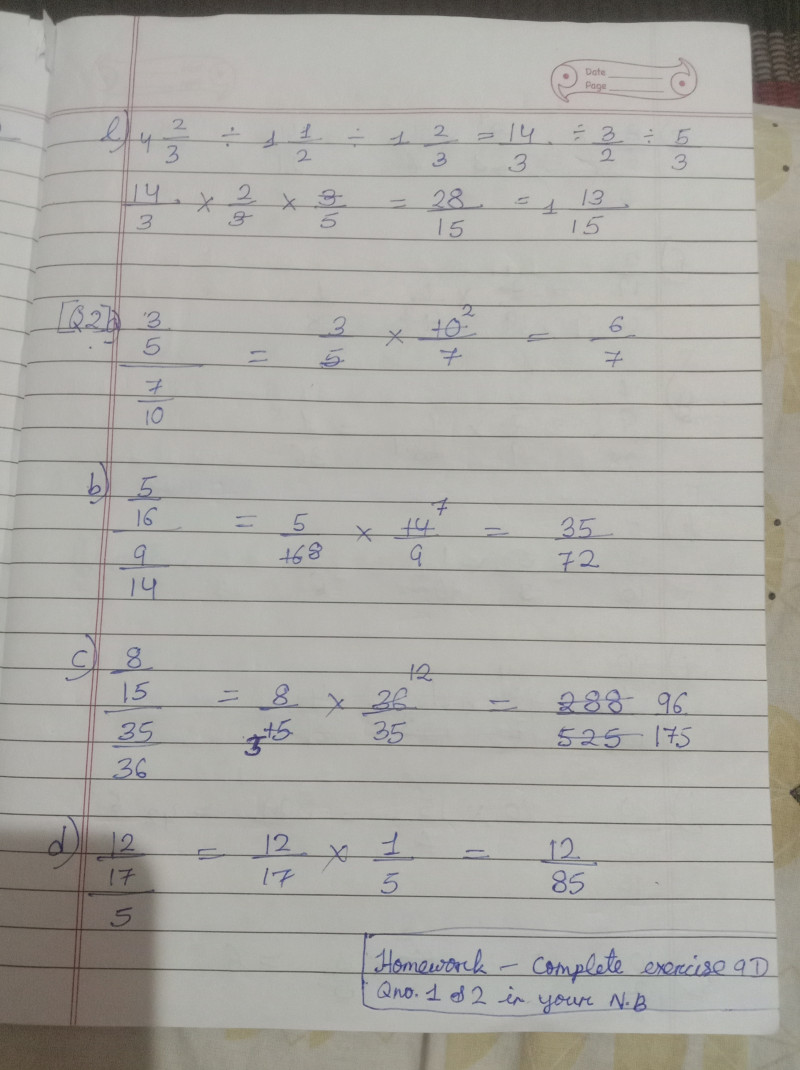 Date
Page
l) 4 2/3 ÷ 1 1/2 ÷ 1 2/3 = 14/3 ÷ 3/2 ÷ 5/3
14/3 × 2/3 × 3/5 = 28/15 = 1 13/15
[Q2] a) 3/5 / 7/10 = 3/5 × 10 2/7 = 6/7
b) 5/16 / 9/14 = 5/16 8 × 14 7/9 = 35/72
c) 8/15 / 35/36 = 8/15 5 × 36 12/35 = 288/525 96/175
d) 12/17 / 5 = 12/17 × 1/5 = 12/85
Homework - Complete exercise 9D
Qno. 1 & 2 in your N.B